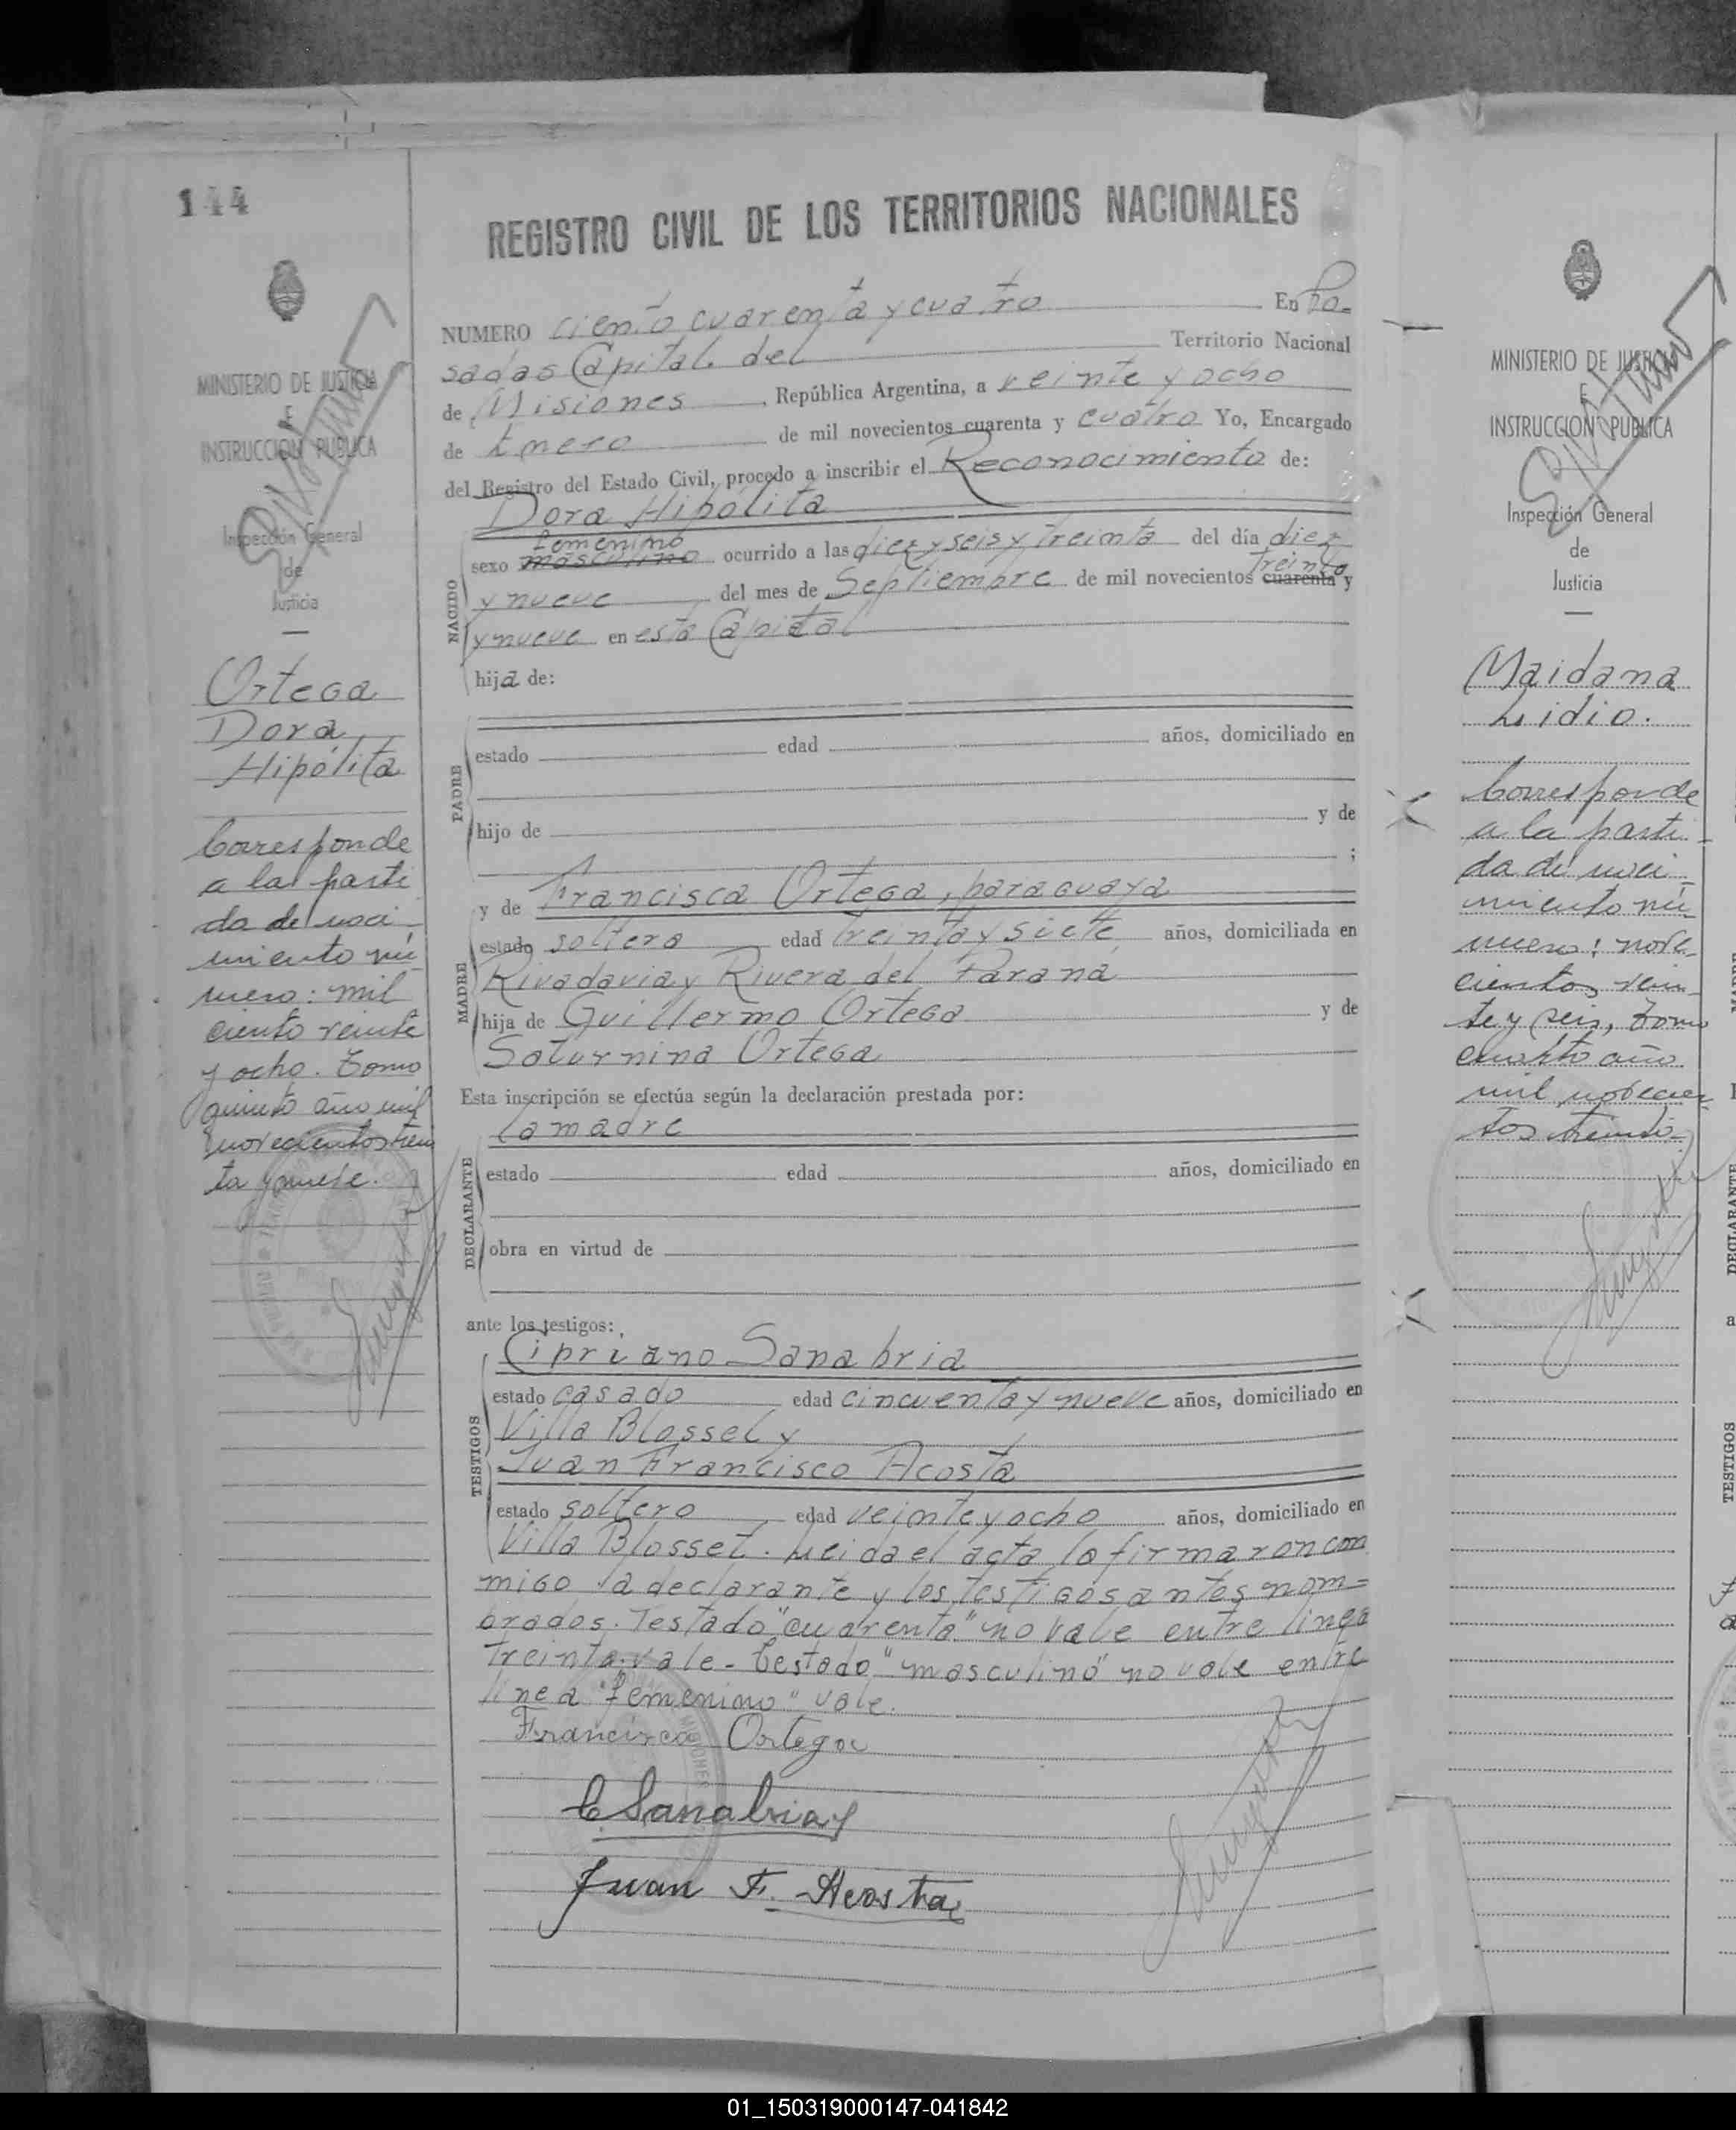 144
REGISTRO CIVIL DE LOS TERRITORIOS NACIONALES
MINISTERIO DE JUSTICIA
E
INSTRUCCION PUBLICA
Inspección General
de
Justicia
Ortega
Dora
Hipólita
Corresponde
a la parti
da de naci
miento nú-
mero: mil
ciento veinte
y ocho. Tomo
quinto año mil
novecientos trein
ta y nueve.
NUMERO ciento cuarenta y cuatro En Po-
sadas Capital del Territorio Nacional
de Misiones, República Argentina, a veinte y ocho
de Enero de mil novecientos cuarenta y cuatro Yo, Encargado
del Registro del Estado Civil, procedo a inscribir el Reconocimiento de:
Dora Hipólita
femenino
sexo masculino ocurrido a las diez y seis y treinta del día diez
treinta
y nueve del mes de Septiembre de mil novecientos cuarenta y
y nueve en esta Capital
NACIDO
hija de:
estado edad años, domiciliado en
PADRE
hijo de y de
;
y de Francisca Ortega, paraguaya
estado soltera edad treinta y siete años, domiciliada en
Rivadavia y Rivera del Paraná
MADRE
hija de Guillermo Ortega y de
Saturnina Ortega
Esta inscripción se efectúa según la declaración prestada por:
la madre
estado edad años, domiciliado en
DECLARANTE
obra en virtud de
ante los testigos:
Cipriano Sanabria
estado casado edad cincuenta y nueve años, domiciliado en
Villa Blosset y
TESTIGOS
Juan Francisco Acosta
estado soltero edad veinte y ocho años, domiciliado en
Villa Blosset. Leida el acta la firmaron con
migo la declarante y los testigos antes nom=
brados. Testado "cuarenta" no vale entre linea
treinta. vale - Testado "masculino" no vale entre
linea "femenino" vale.
Francisca Ortega
C Sanabria
Juan F. Acosta
MINISTERIO DE JUSTICIA
E
INSTRUCCION PUBLICA
Inspección General
de
Justicia
Maidana
Lidio.
Corresponde
a la parti
da de naci
miento nú-
mero: nove-
cientos vein-
te y seis, tomo
cuarto año
mil novecien
tos treinta.
DECLARANTE
TESTIGOS
01_150319000147-041842